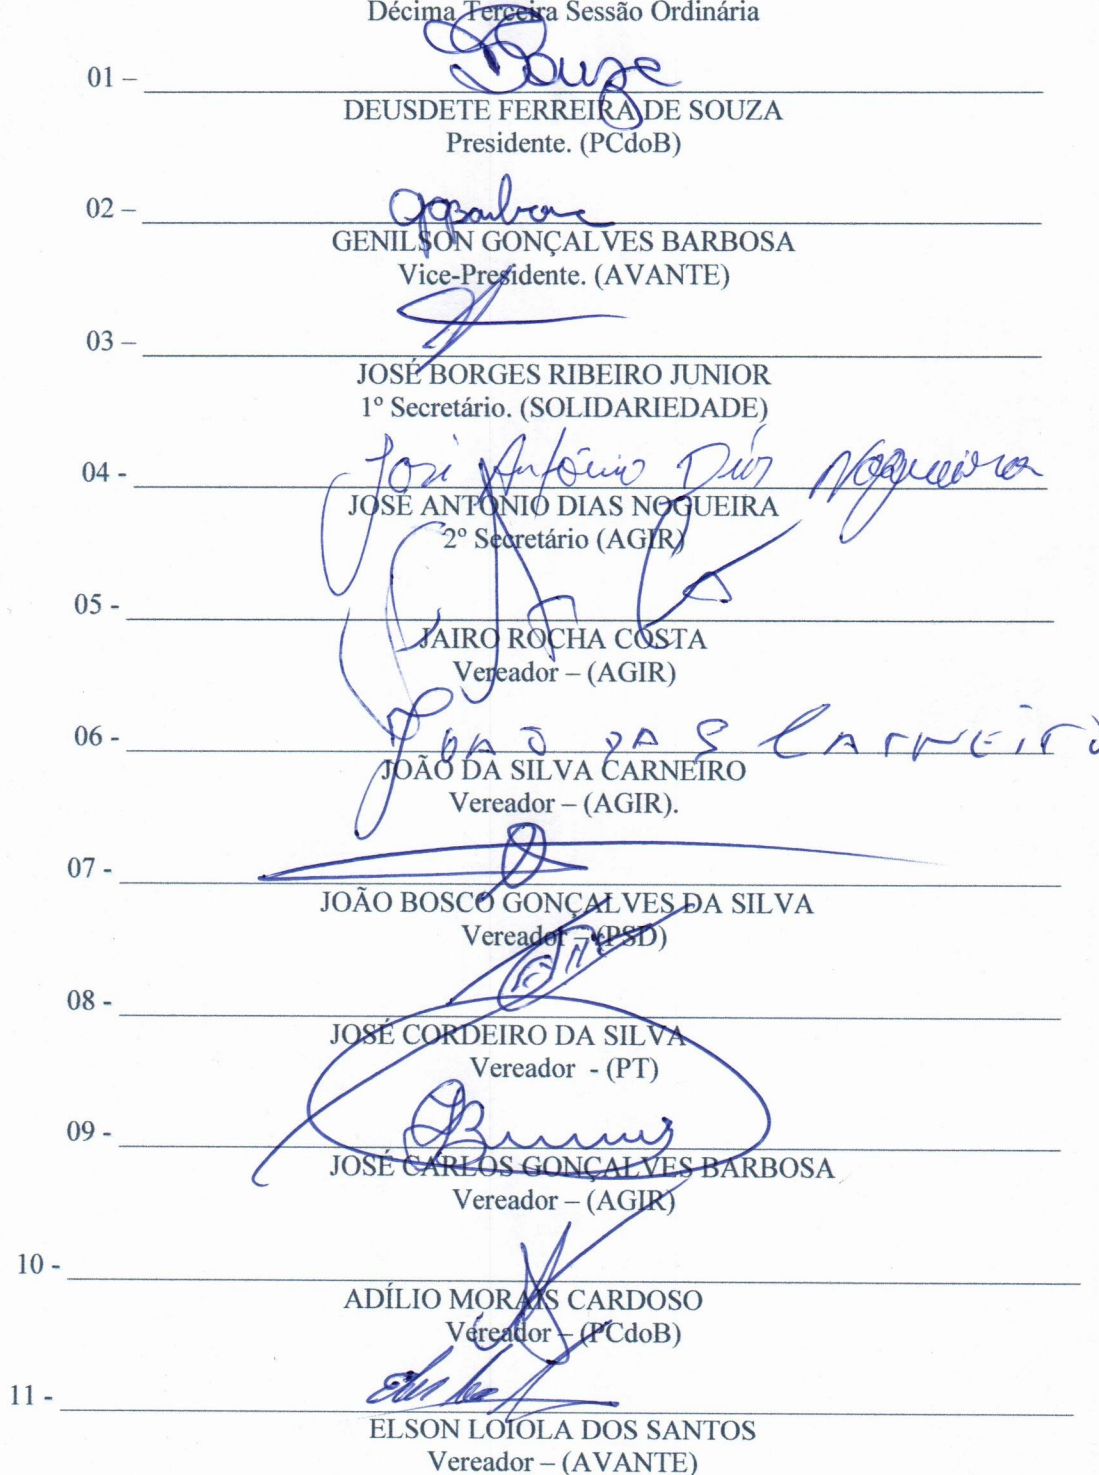 Décima Terceira Sessão Ordinária
Souza
01 –
DEUSDETE FERREIRA DE SOUZA
Presidente. (PCdoB)
02 –
GENILSON GONÇALVES BARBOSA
Vice-Presidente. (AVANTE)
03 –
JOSÉ BORGES RIBEIRO JUNIOR
1º Secretário. (SOLIDARIEDADE)
José Antônio Dias Nogueira
04 -
JOSÉ ANTÔNIO DIAS NOGUEIRA
2º Secretário (AGIR)
05 -
JAIRO ROCHA COSTA
Vereador – (AGIR)
06 - JOAO DA S CARNEIRO
JOÃO DA SILVA CARNEIRO
Vereador – (AGIR).
07 -
JOÃO BOSCO GONÇALVES DA SILVA
Vereador – (PSD)
08 -
JOSÉ CORDEIRO DA SILVA
Vereador - (PT)
09 -
JOSÉ CARLOS GONÇALVES BARBOSA
Vereador – (AGIR)
10 -
ADÍLIO MORAIS CARDOSO
Vereador – (PCdoB)
11 -
ELSON LOIOLA DOS SANTOS
Vereador – (AVANTE)